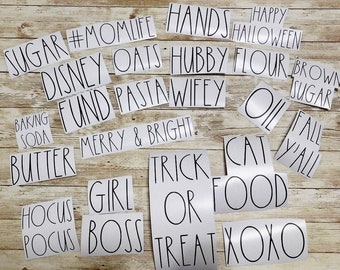 HANDS
HAPPY
HALLOWEEN
#MOMLIFE
SUGAR
OATS
HUBBY
FLOUR
DISNEY
FUND
PASTA
WIFEY
BROWN
SUGAR
OIL
BAKING
SODA
MERRY & BRIGHT
FALL
Y'ALL
BUTTER
TRICK
OR
TREAT
CAT
FOOD
GIRL
BOSS
HOCUS
POCUS
XOXO